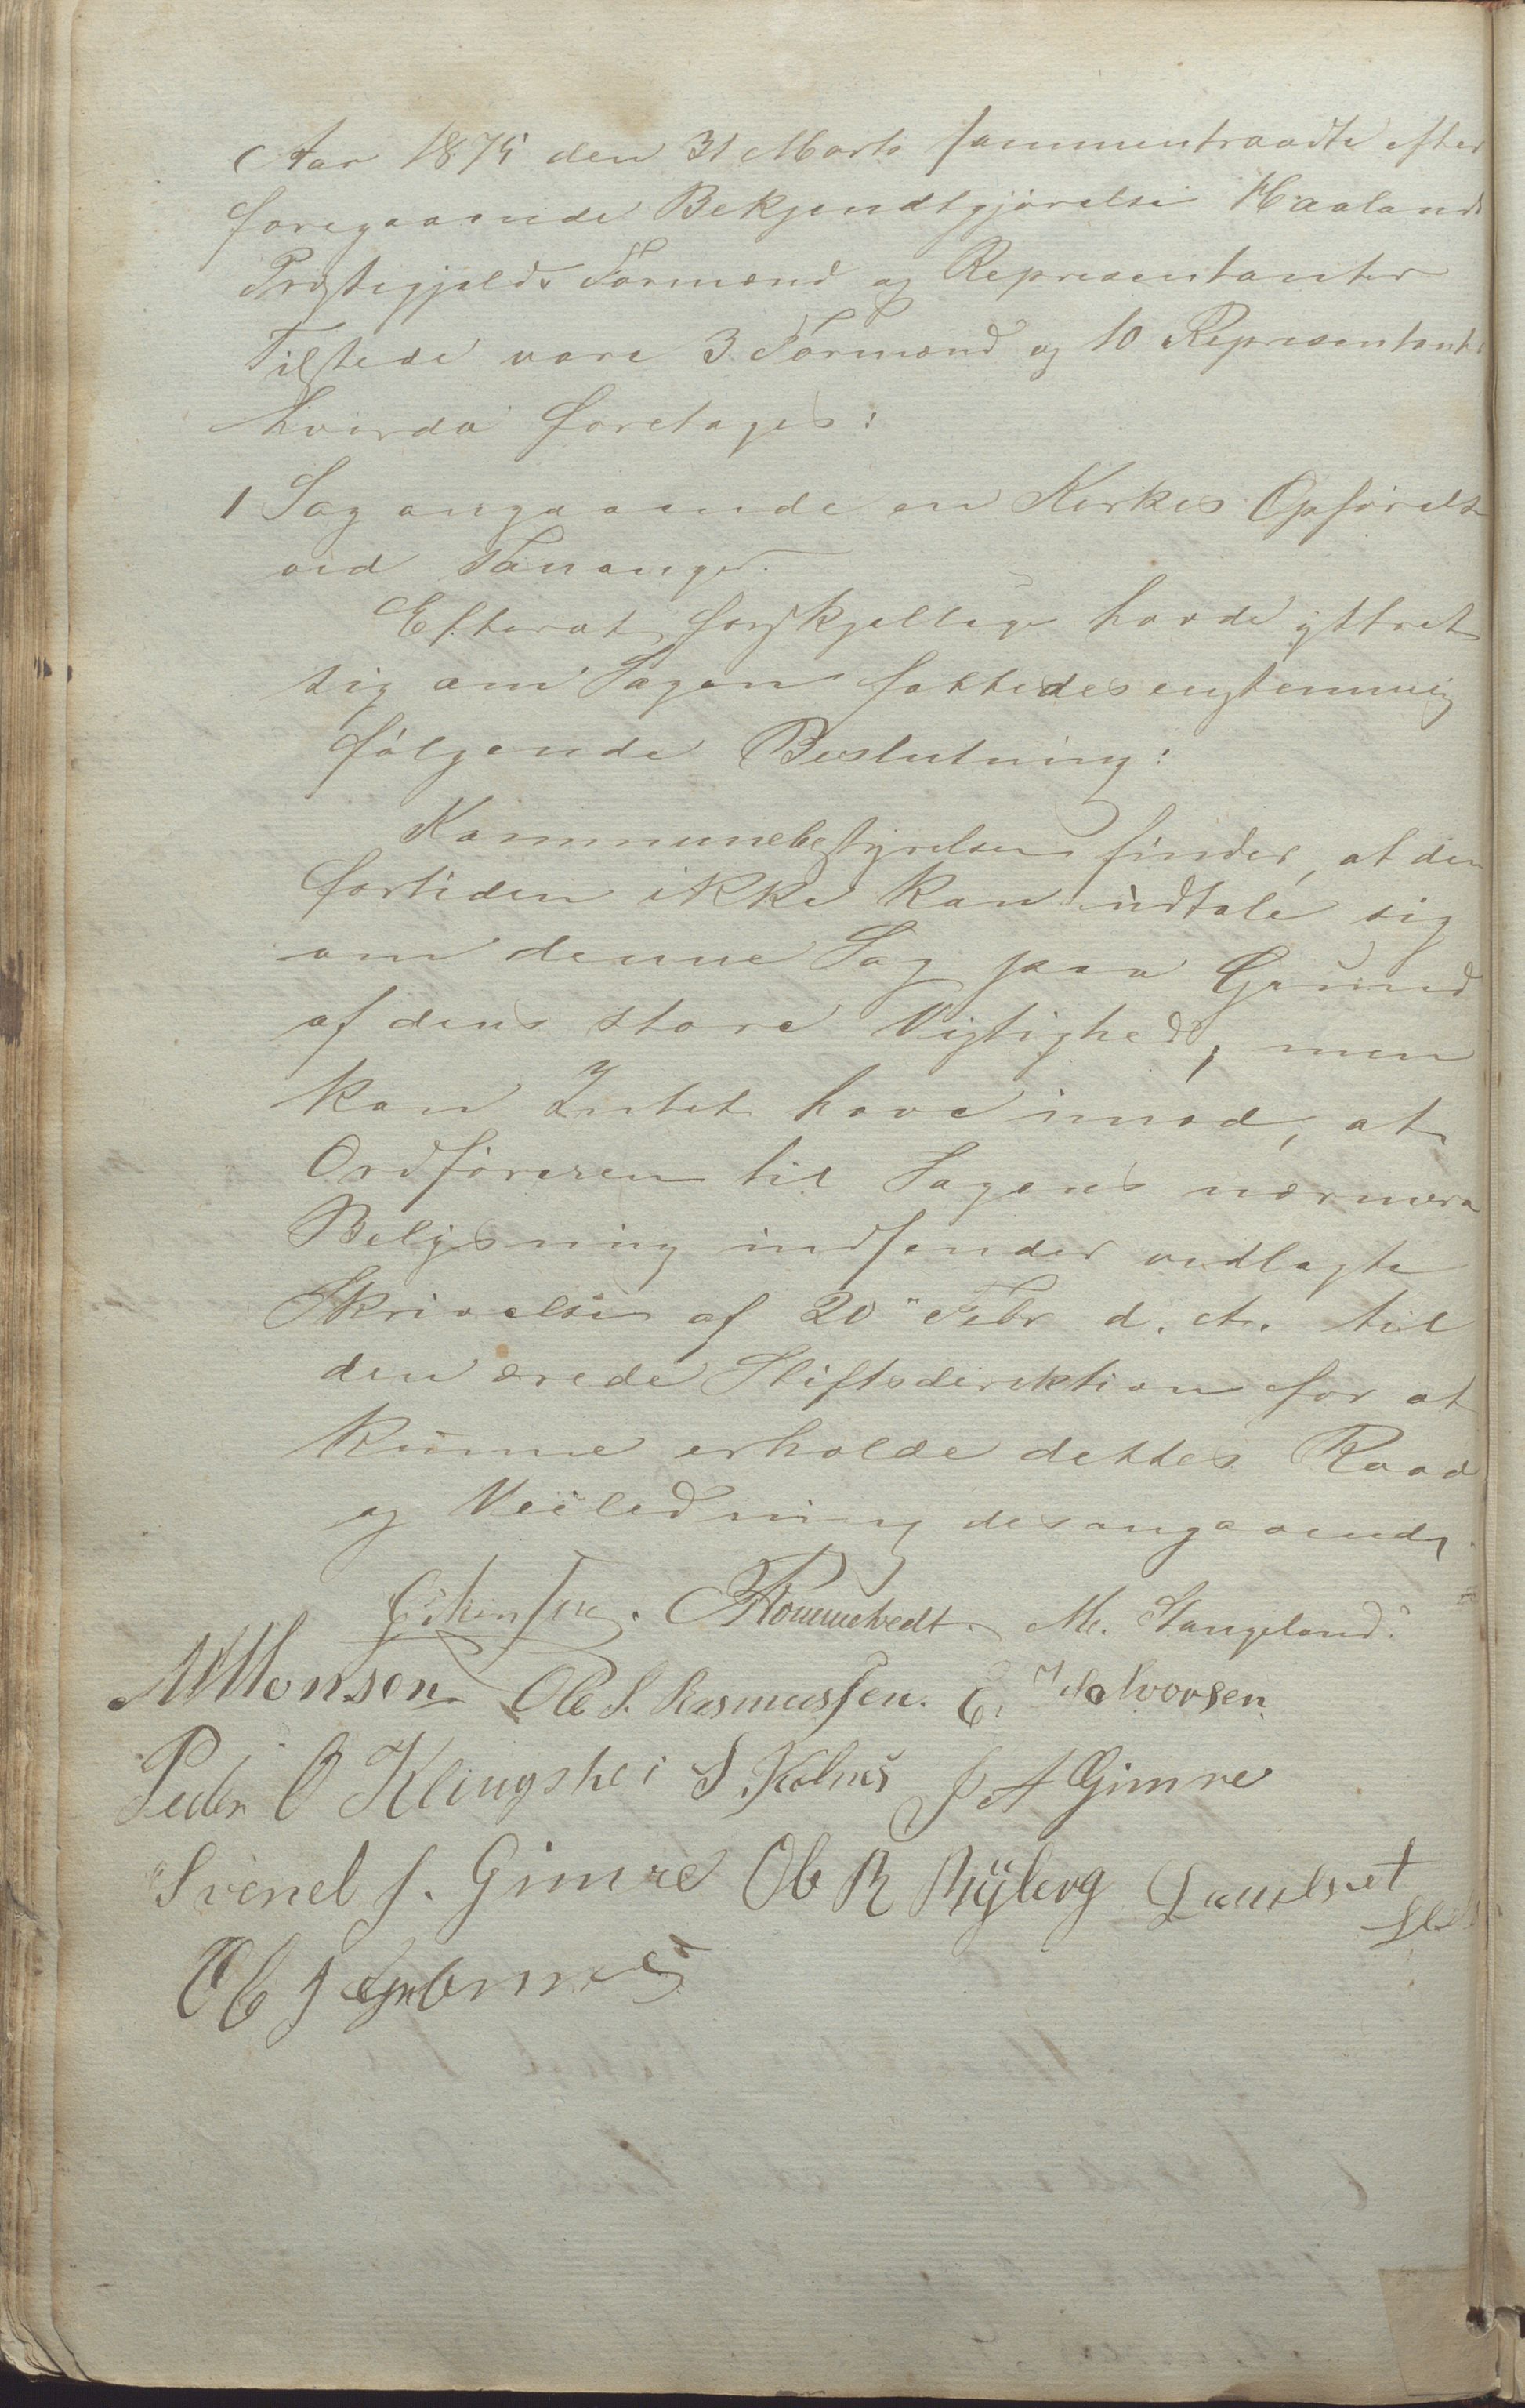 Aar 1875 den 31 Marts sammentraadte efter
foregaaende Bekjendtgjørelse Haalands
Præstegjelds Formænd og Repræsentanter
Tilstede vare 3 Formænd og 10 Repræsentanter
hvorda foretages:
1 Sag angaaende en Kirkes Opførelse
ved Tananger.
Efterat forskjellige havde yttret
sig om Sagen fattedes enstemmig
følgende Beslutning:
Kommunebestyrelsen finder, at den
fortiden ikke kan udtale sig
om denne Sag paa Grund
af dens store Vigtighed, men
kan Intet have imod, at
Ordføreren til Sagens nærmere
Belysning indsender vedlagte
Skrivelse af 20 Febr d. A. til
den ærede Stiftsdirektion for at
kunne erholde dettes Raad
og Veiledning desangaaende.
Rommetvedt. M. Stangeland.
M Monsen Ole S. Rasmussen. E. Halvorsen
Peder O Klingshei S. Kolnes J A Gimre
Svend J. Gimre Ole R Myklebus
Ole J